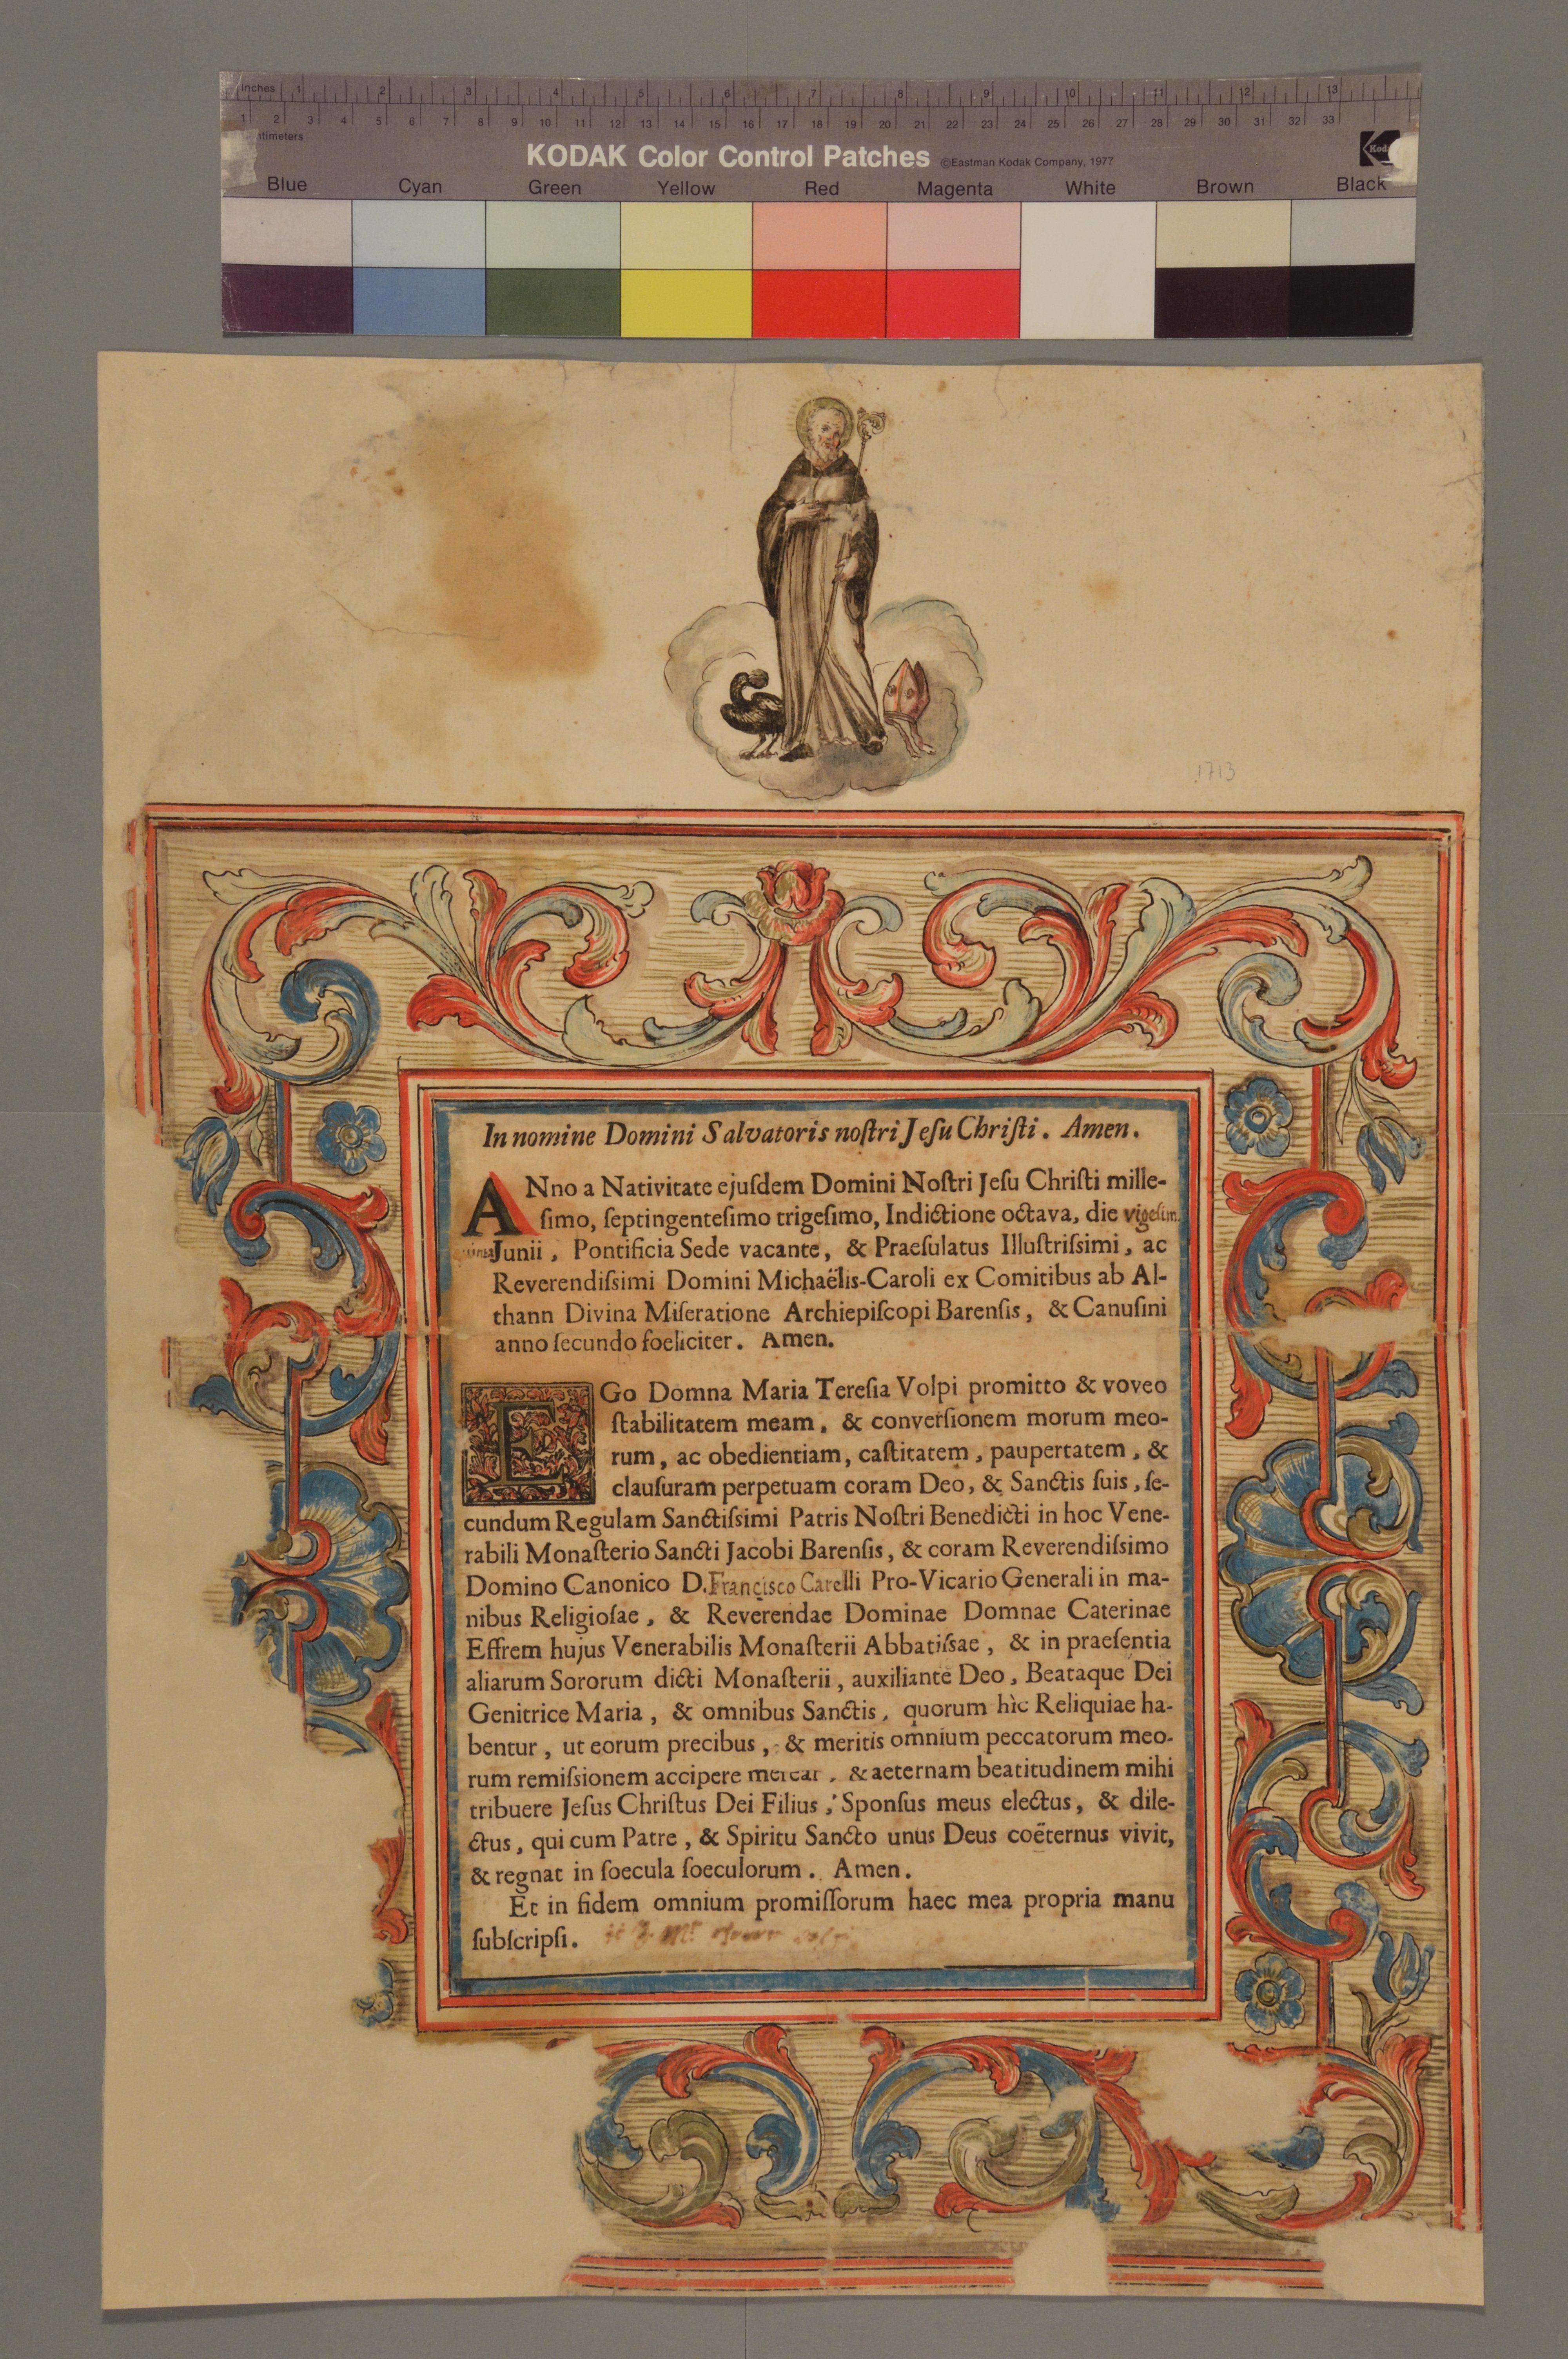 inches 1 2 3 4 5 6 7 8 9 10 11 12 13
1 2 3 4 5 6 7 8 9 10 11 12 13 14 15 16 17 18 19 20 21 22 23 24 25 26 27 28 29 30 31 32 33
timeters
KODAK Color Control Patches ©Eastman Kodak Company, 1977 Kodak
Blue Cyan Green Yellow Red Magenta White Brown Black
1713
In nomine Domini Salvatoris noſtri Jeſu Chriſti. Amen.
ANno a Nativitate ejuſdem Domini Noſtri Jeſu Chriſti mille-
ſimo, ſeptingenteſimo trigeſimo, Indictione octava, die
Junii, Pontificia Sede vacante, & Praeſulatus Illuſtriſsimi, ac
Reverendiſsimi Domini Michaëlis-Caroli ex Comitibus ab Al-
thann Divina Miſeratione Archiepiſcopi Barenſis, & Canuſini
anno ſecundo foeliciter. Amen.
EGo Domna Maria Tereſia Volpi promitto & voveo
ſtabilitatem meam, & converſionem morum meo-
rum, ac obedientiam, caſtitatem, paupertatem, &
clauſuram perpetuam coram Deo, & Sanctis ſuis, ſe-
cundum Regulam Sanctiſsimi Patris Noſtri Benedicti in hoc Vene-
rabili Monaſterio Sancti Jacobi Barenſis, & coram Reverendiſsimo
Domino Canonico D. Franciſco Carelli Pro-Vicario Generali in ma-
nibus Religioſae, & Reverendae Dominae Domnae Caterinae
Effrem hujus Venerabilis Monaſterii Abbatiſsae, & in praeſentia
aliarum Sororum dicti Monaſterii, auxiliante Deo, Beataque Dei
Genitrice Maria, & omnibus Sanctis, quorum hìc Reliquiae ha-
bentur, ut eorum precibus, & meritis omnium peccatorum meo-
rum remiſsionem accipere merear, & aeternam beatitudinem mihi
tribuere Jeſus Chriſtus Dei Filius, Sponſus meus electus, & dile-
ctus, qui cum Patre, & Spiritu Sancto unus Deus coëternus vivit,
& regnat in ſoecula ſoeculorum. Amen.
Et in fidem omnium promiſſorum haec mea propria manu
ſubſcripſi.